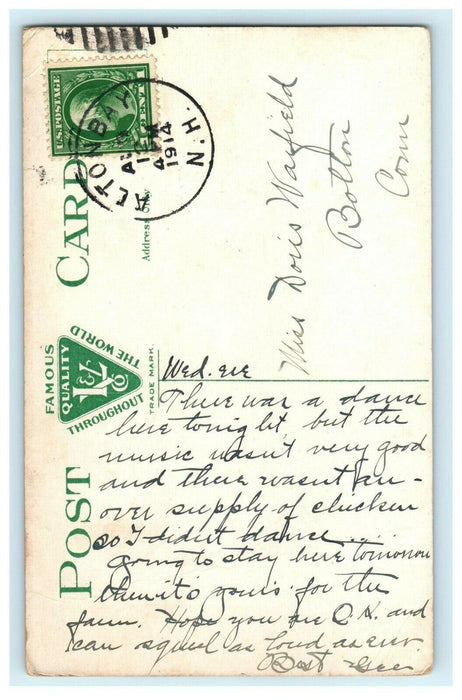 U.S. POSTAGE
CENT
ALTON BAY
AUG
1914
N.H.
POST CARD
Address Only
FAMOUS
QUALITY
THROUGHOUT
THE WORLD
TRADE MARK.
Miss Doris Warfield
Bolton
Conn
Wed. eve
There was a dance
here tonight, but the
music wasn't very good
and there wasn't an-
over supply of chicken
so I didn't dance....
going to stay here tomorrow
then it's yours for the
farm. Hope you are O.K. and
can squeal as loud as ever.